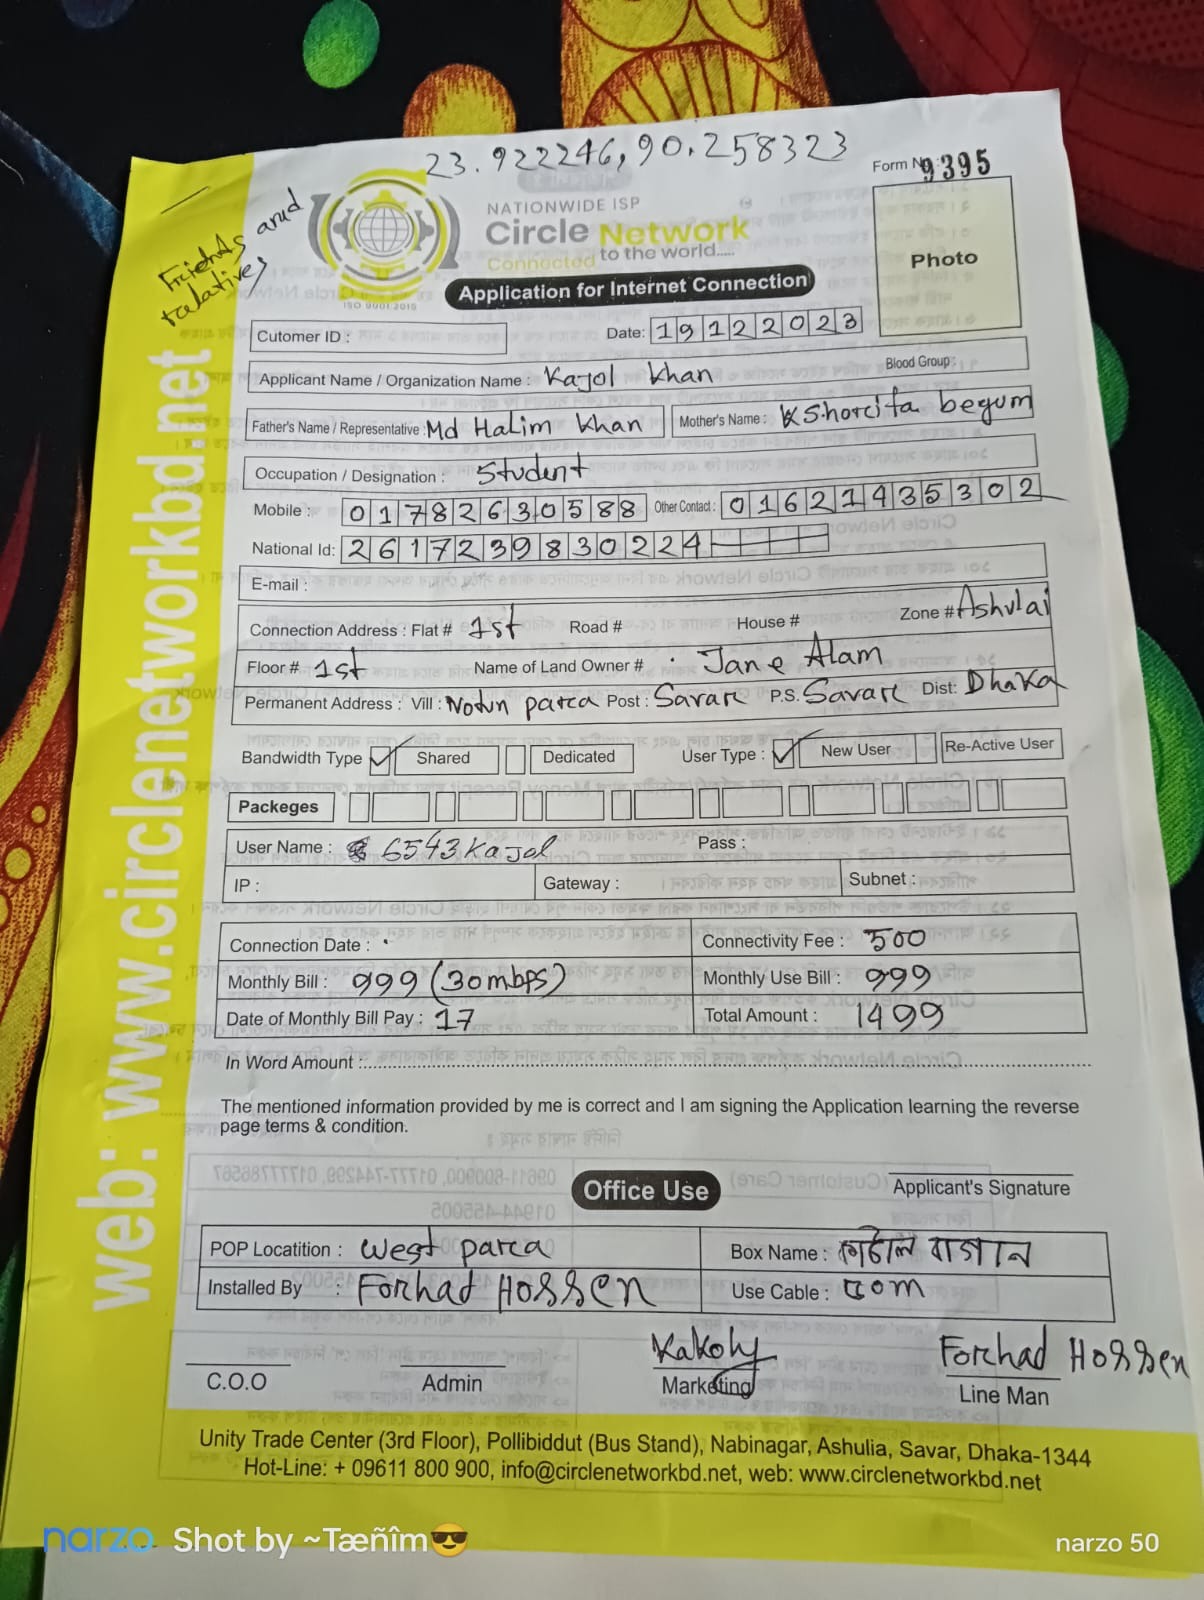 23.922246, 90.258323
Form No 9395
Friends and
relatives
NATIONWIDE ISP
Circle Network
Connected to the world.....
ISO 9001:2015
Application for Internet Connection
Photo
Cutomer ID :
Date: 19122023
Blood Group:
Applicant Name / Organization Name : Kajol Khan
Father's Name / Representative : Md Halim Khan Mother's Name : Kshorcifa begum
Occupation / Designation : Student
Mobile : 01782630588 Other Contact : 01621435302
National Id: 2617239830224
E-mail :
Connection Address : Flat # 1st Road # House # Zone # Ashulai
Floor # 1st Name of Land Owner # Jane Alam
Permanent Address : Vill : Notun parca Post : Savarc P.S. Savarc Dist: Dhaka
Bandwidth Type Shared Dedicated User Type : New User Re-Active User
Packeges
User Name : 6543kajol Pass :
IP : Gateway : Subnet :
Connection Date : Connectivity Fee : 500
Monthly Bill : 999 (30mbps) Monthly Use Bill : 999
Date of Monthly Bill Pay : 17 Total Amount : 1499
In Word Amount :
The mentioned information provided by me is correct and I am signing the Application learning the reverse
page terms & condition.
Office Use
Applicant's Signature
POP Locatition : West parca Box Name : কাঠাল বাগান
Installed By : Forhad Hossen Use Cable :
Kakoly Forhad Hossen
C.O.O Admin Marketing Line Man
Unity Trade Center (3rd Floor), Pollibiddut (Bus Stand), Nabinagar, Ashulia, Savar, Dhaka-1344
Hot-Line: + 09611 800 900, info@circlenetworkbd.net, web: www.circlenetworkbd.net
web: www.circlenetworkbd.net
narzo Shot by ~Tæñîm😎
narzo 50